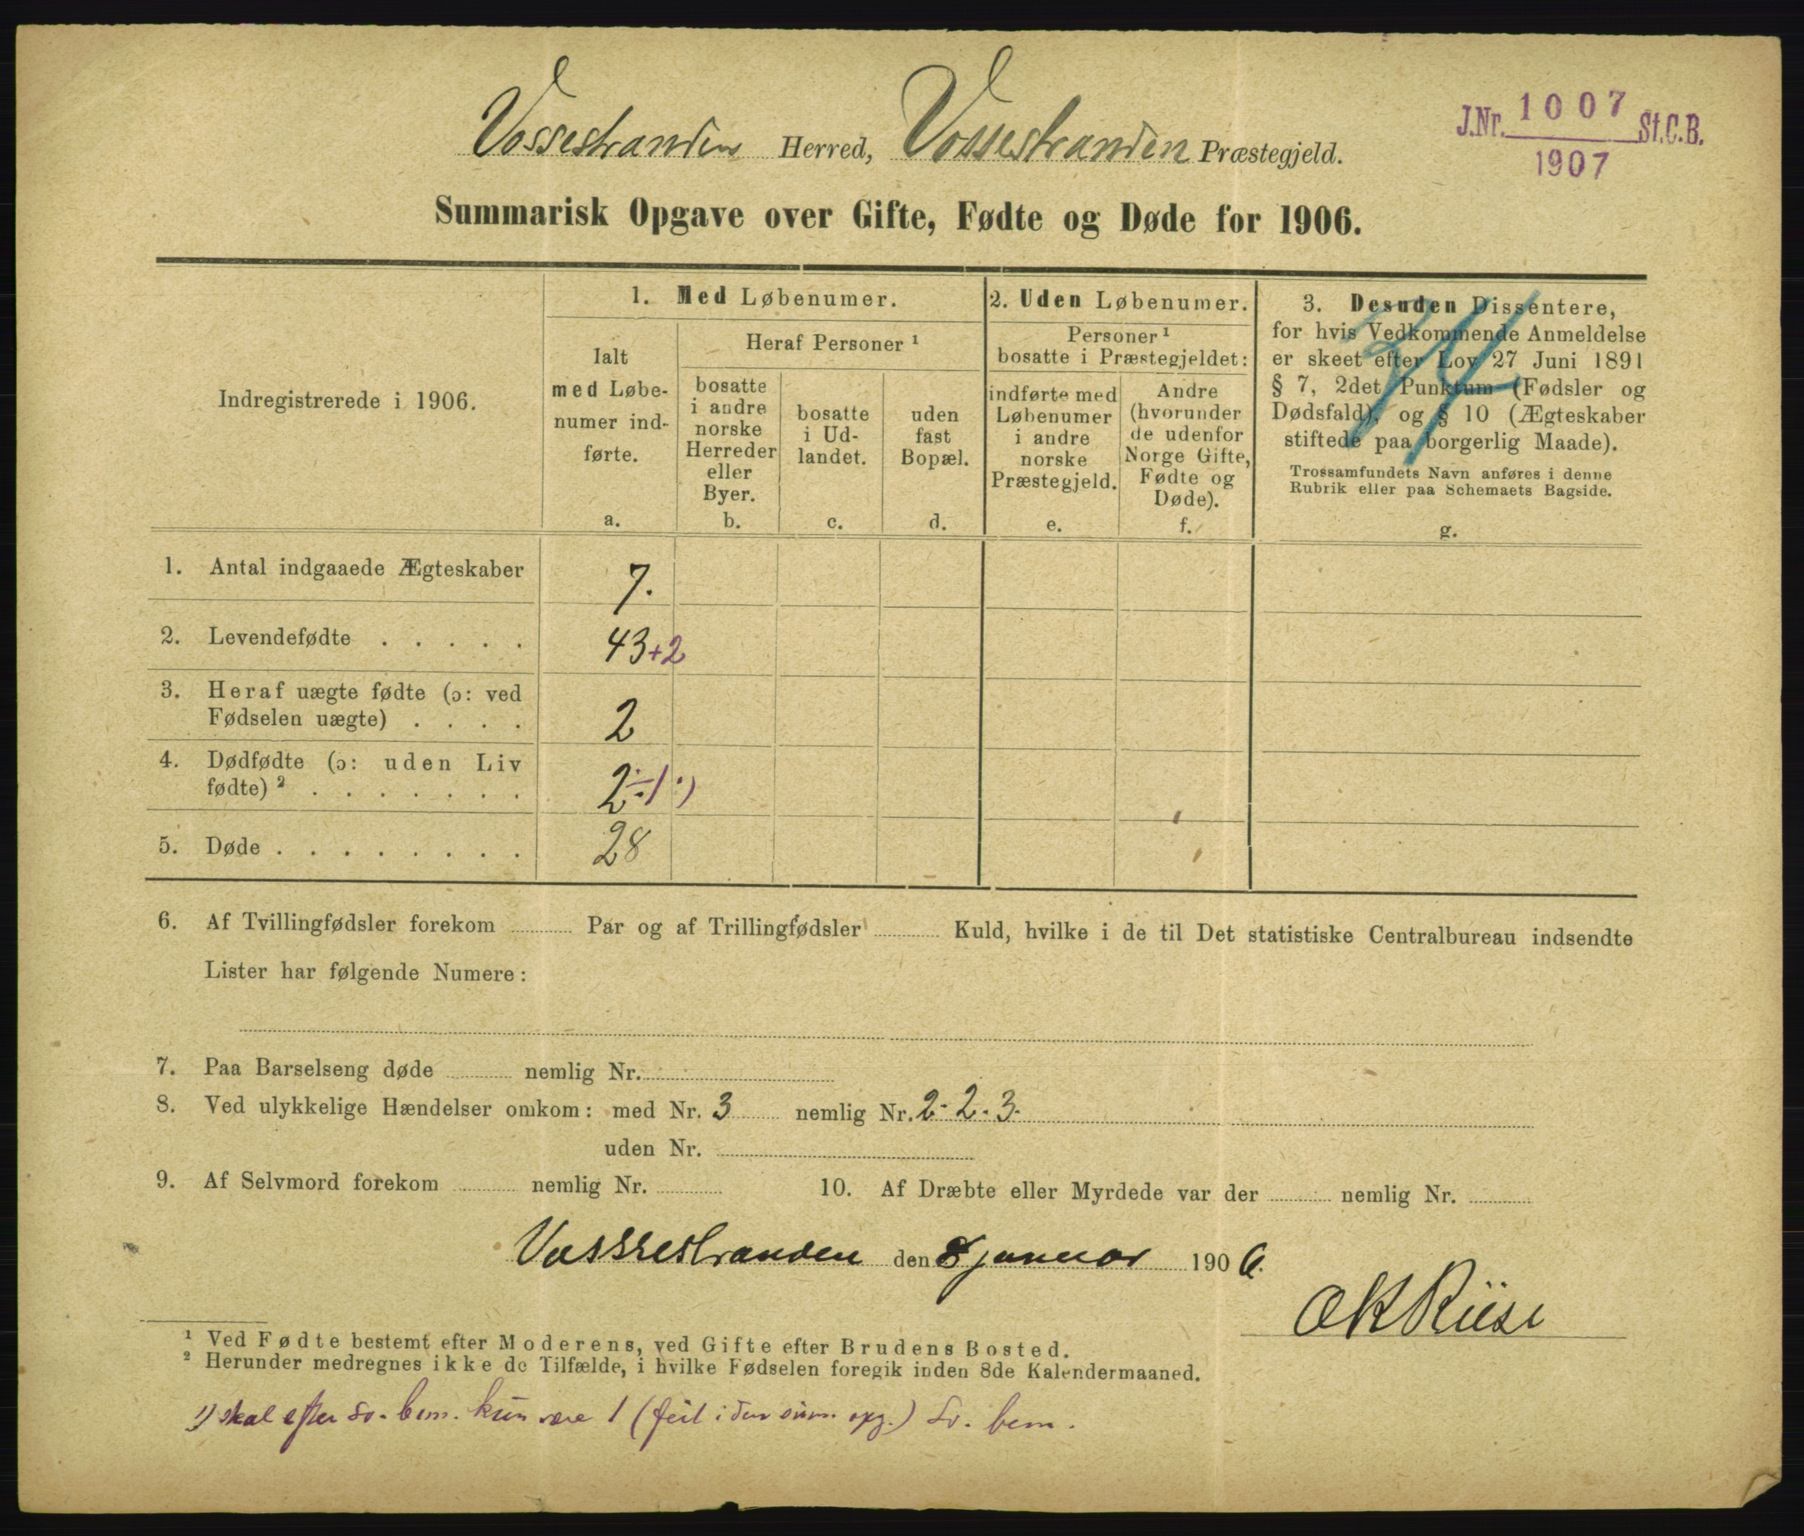 Vossestranden Herred, Vossestranden Præstegjeld.
J.Nr. 1007 St.C.B.
1907
Summarisk Opgave over Gifte, Fødte og Døde for 1906.
Indregistrerede i 1906.
1. Med Løbenumer.
Ialt
med Løbe-
numer ind-
førte.
a.
Heraf Personer ¹
bosatte
i andre
norske
Herreder
eller
Byer.
b.
bosatte
i Ud-
landet.
c.
uden
fast
Bopæl.
d.
2. Uden Løbenumer.
Personer ¹
bosatte i Præstegjeldet:
indførte med
Løbenumer
i andre
norske
Præstegjeld.
e.
Andre
(hvorunder
de udenfor
Norge Gifte,
Fødte og
Døde).
f.
3. Desuden Dissentere,
for hvis Vedkommende Anmeldelse
er skeet efter Lov 27 Juni 1891
§ 7, 2det Punktum (Fødsler og
Dødsfald), og § 10 (Ægteskaber
stiftede paa borgerlig Maade).
Trossamfundets Navn anføres i denne
Rubrik eller paa Schemaets Bagside.
g.
1. Antal indgaaede Ægteskaber 7.
2. Levendefødte . . . . . 43+2
3. Heraf uægte fødte (ɔ: ved
Fødselen uægte) . . . . 2
4. Dødfødte (ɔ: uden Liv
fødte) ² . . . . . . . 2÷1 ¹)
5. Døde . . . . . . . . 28
6. Af Tvillingfødsler forekom Par og af Trillingfødsler Kuld, hvilke i de til Det statistiske Centralbureau indsendte
Lister har følgende Numere:
7. Paa Barselseng døde nemlig Nr.
8. Ved ulykkelige Hændelser omkom: med Nr. 3 nemlig Nr. 2-2-3-
uden Nr.
9. Af Selvmord forekom nemlig Nr. 10. Af Dræbte eller Myrdede var der nemlig Nr.
Vossestranden den 8 januar 1906.
OKRiise
¹ Ved Fødte bestemt efter Moderens, ved Gifte efter Brudens Bosted.
² Herunder medregnes ikke de Tilfælde, i hvilke Fødselen foregik inden 8de Kalendermaaned.
¹) skal efter Sv. bem. kun være 1 (feil i den sum. opg.) Sv. bem.